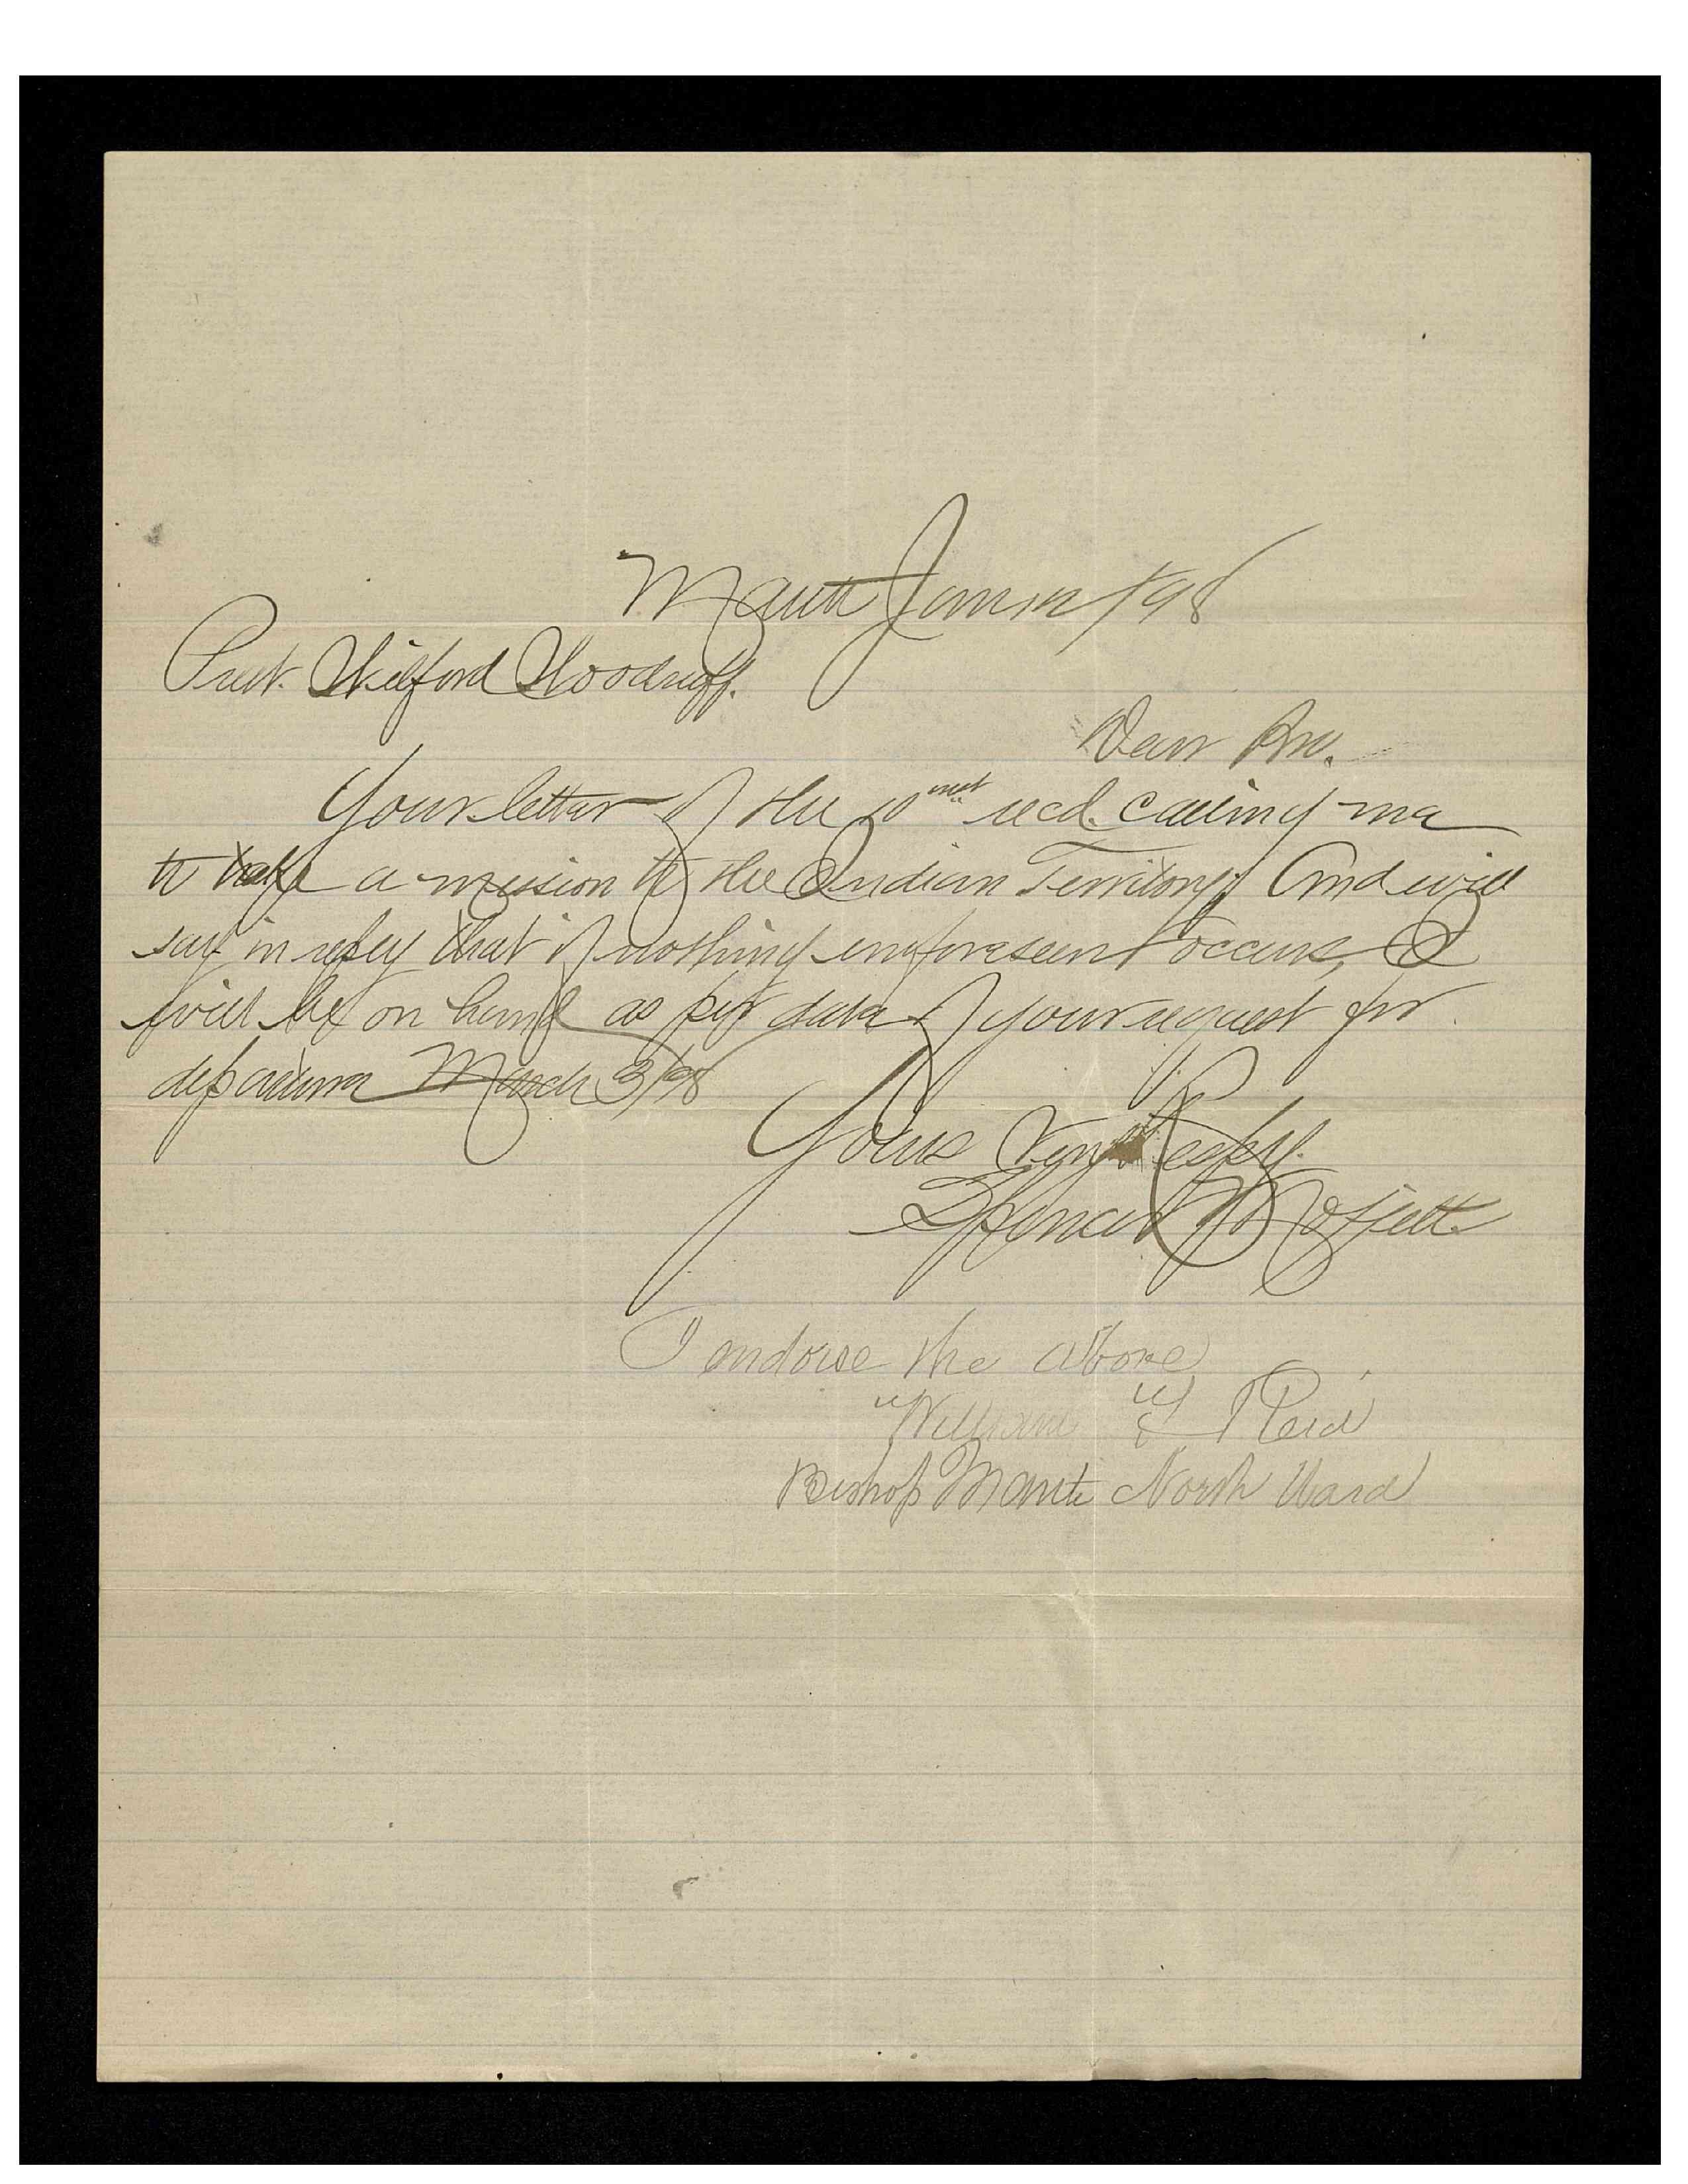 Manti Jan 12/98
Prest. Wilford Woodruff.
Dear Bro.
Your letter of the 10 inst recd. calling me
to take a mission to the Indian Territory, And will
say in reply that if nothing unforeseen occurs, I
will be on hand as per date of your request for
departure March 3/98
Yours Very Respy.
Spencer Moffett
I endorse the above
William Reid
Bishop Manti North Ward